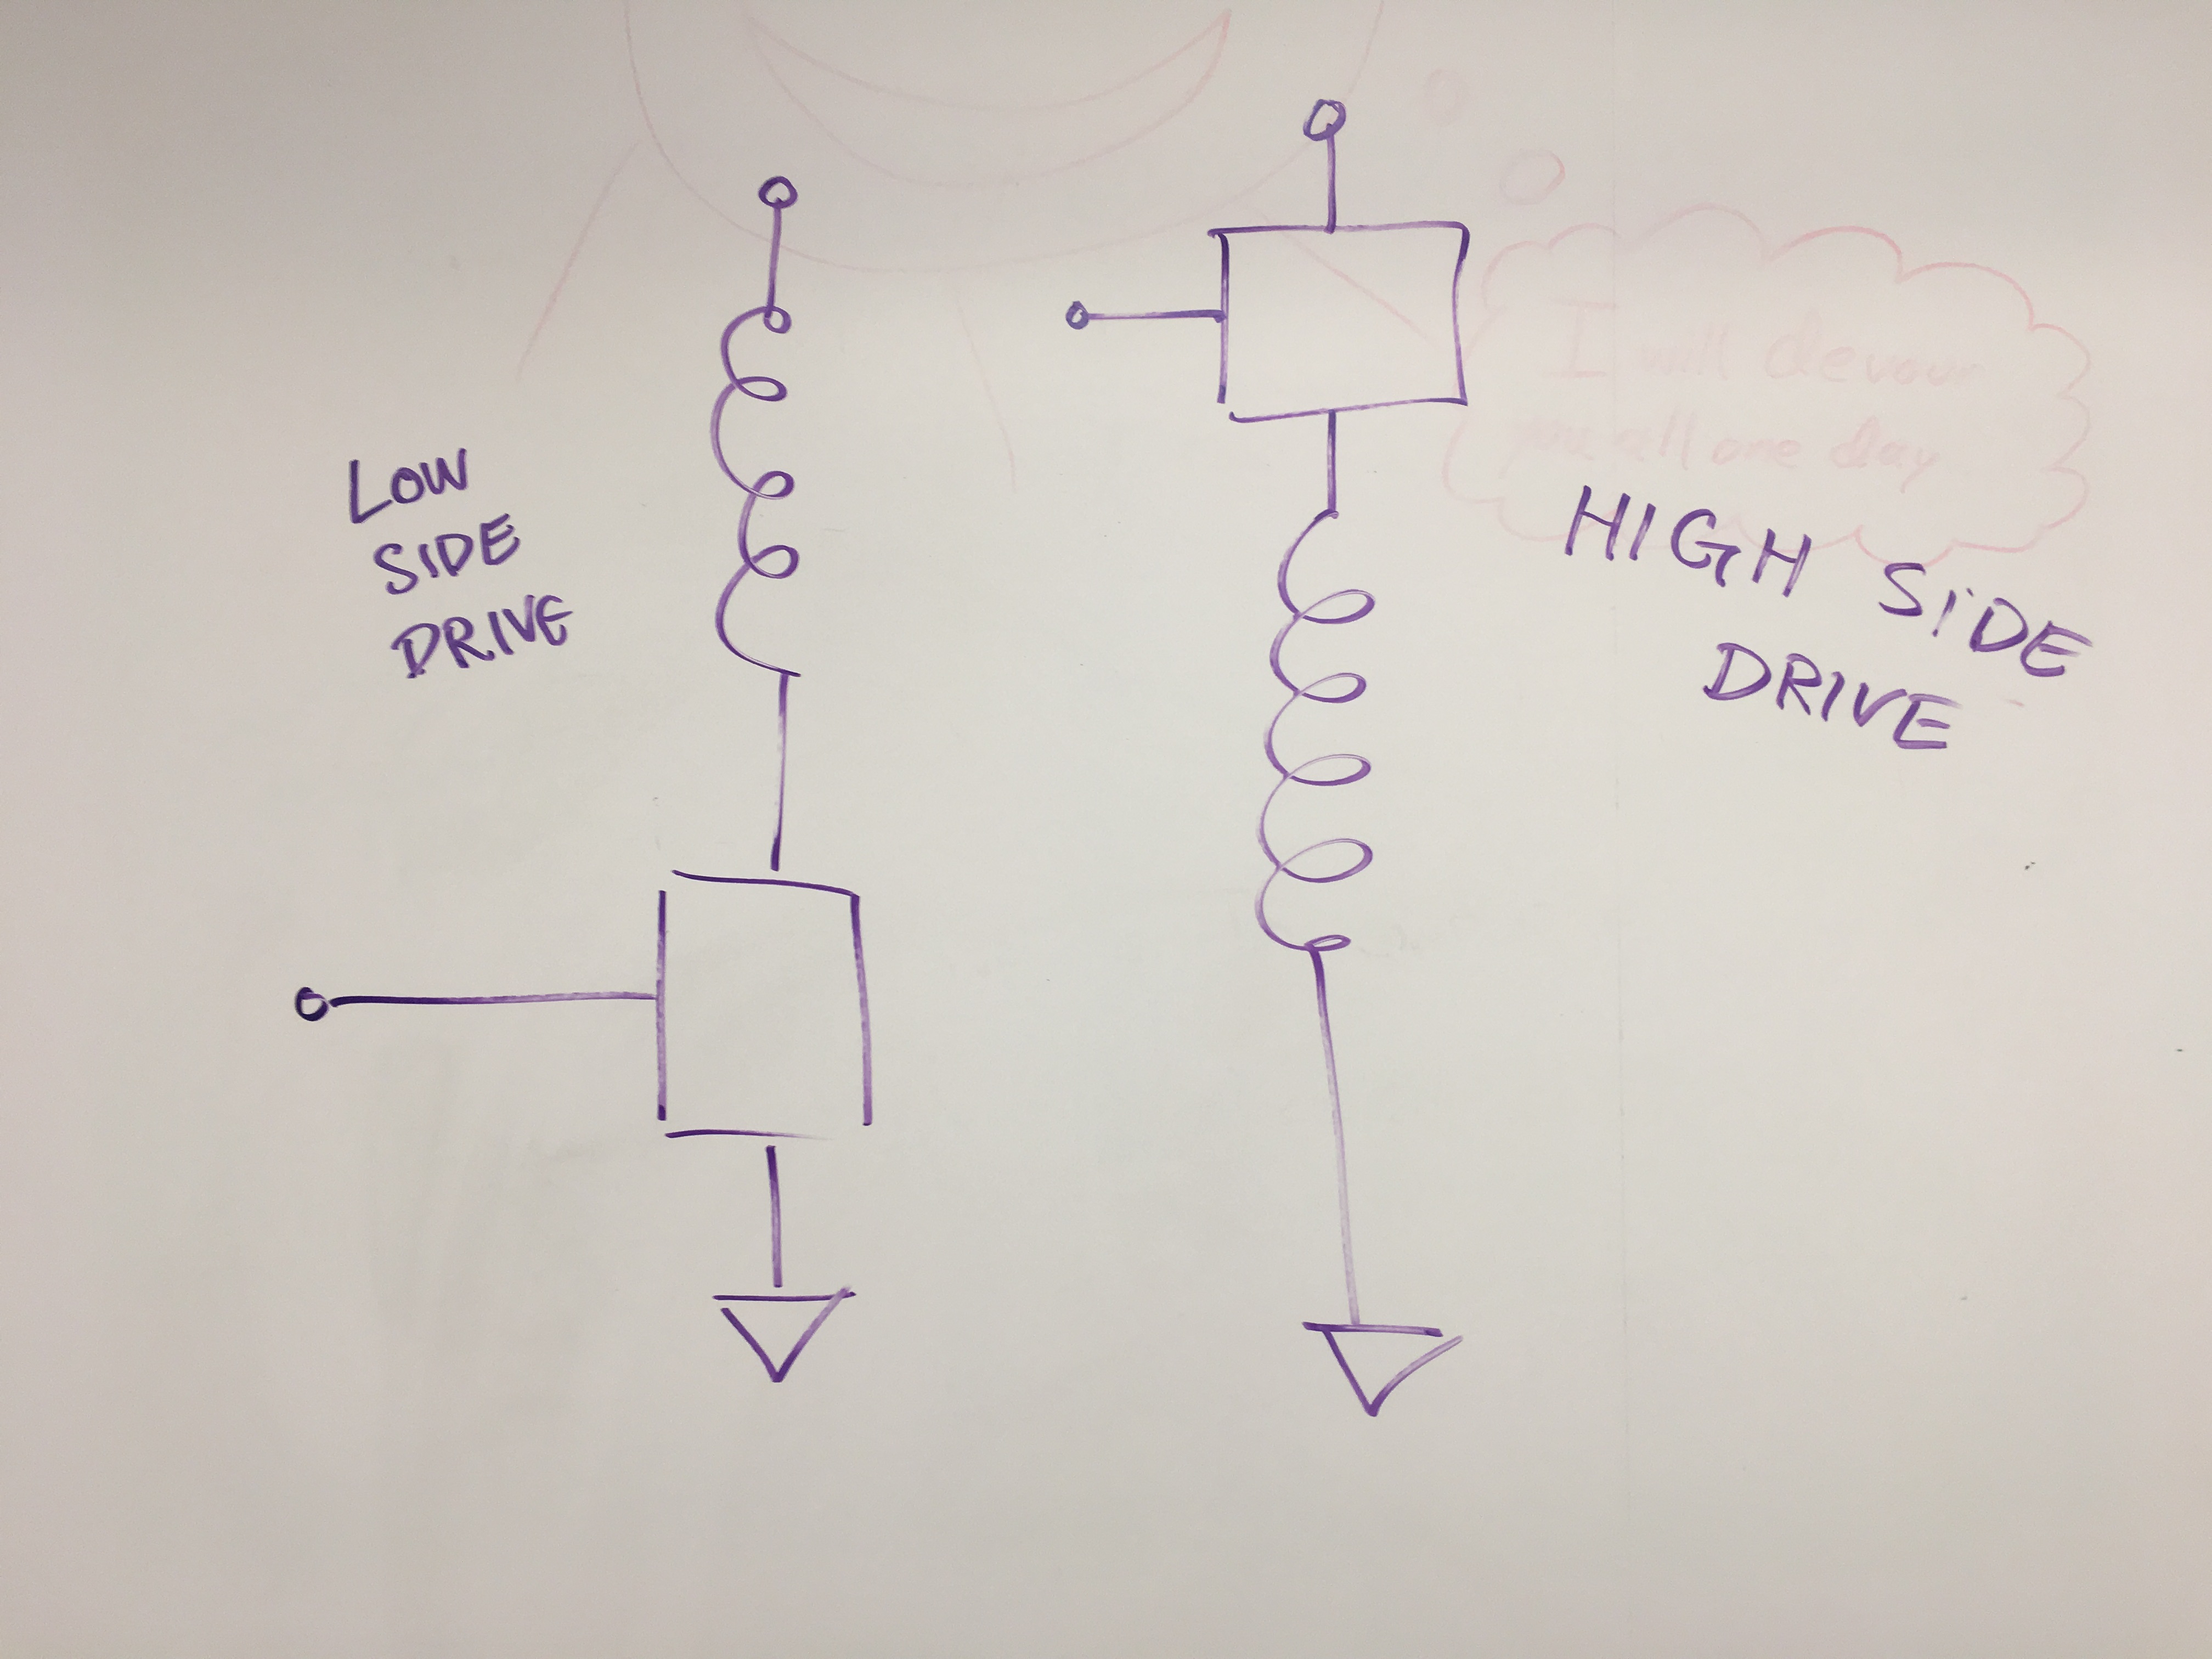 LOW
SIDE
DRIVE
I will devour
you all one day
HIGH SIDE
DRIVE